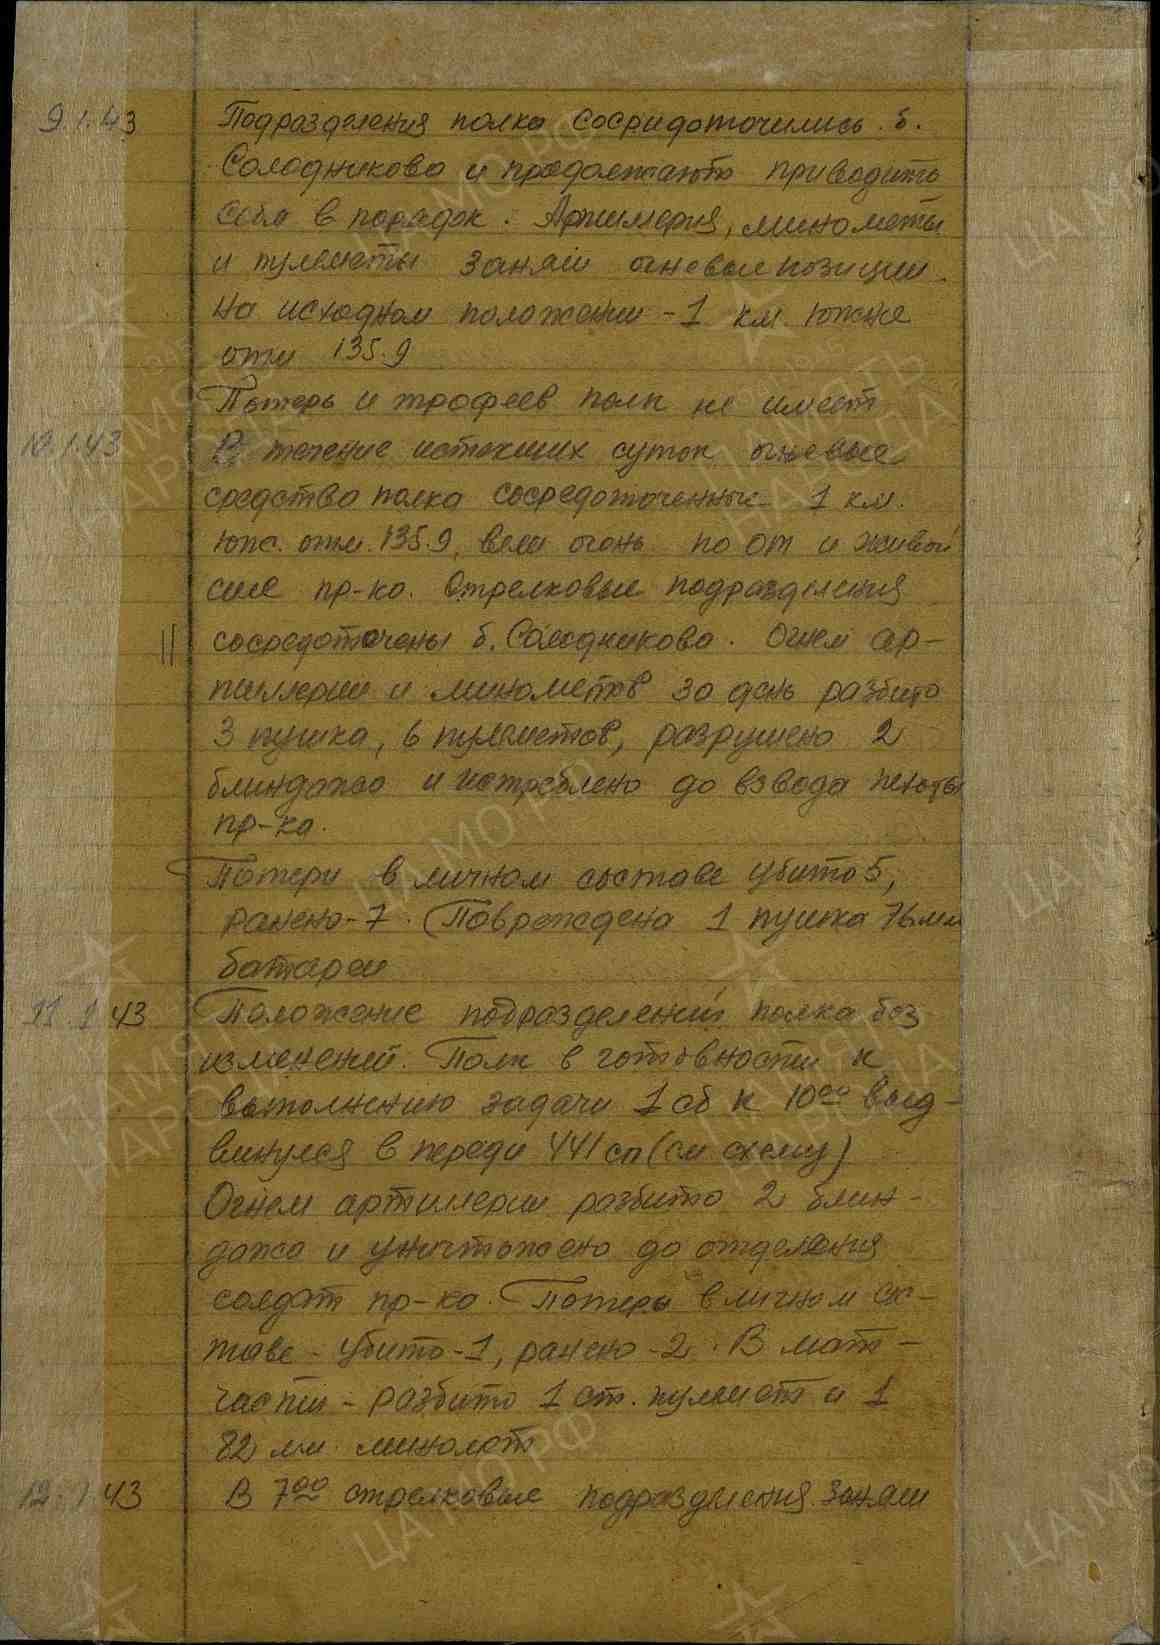 9.1.43 Подразделения полка сосридоточились б.
Солодниково и продолжают приводить
себя в порядок. Артилерия, минометы
и пулеметы заняли огневые позиции
на исходном положении - 1 км южне
отм 135.9
Потерь и трофеев полк не имеет
10.1.43 В течение истекших суток огневые
средства полка сосредоточенные 1 км.
южс. отм. 135.9, вели огонь по от и живой
силе пр-ка. Стрелковые подразделения
сосредоточены б. Солодниково. Огнем ар-
тиллерии и минометов за день разбито
3 пушка, 6 пулеметов, разрушено 2
блиндажа и истреблено до взвода пехоты
пр-ка.
Потери в личном составе убито 5,
ранено-7. Повреждена 1 пушка 76 мм
батареи
11.1.43 Положение подразделений полка без
изменений. Полк в готовности к
выполнению задачи 1 сб к 10 00 выд-
винулся в переди 441 сп (см схему)
Огнем артиллерии разбито 2 блин-
дажа и уничтожено до отделения
солдат пр-ка. Потеры в личном сос-
таве - убито-1, ранено-2. В мат-
части - разбито 1 ст. пулемет и 1
82 мм. миномет
12.1.43 В 7 00 стрелковые подразделения заняли
ЦА МО РФ
ПАМЯТЬ
НАРОДА